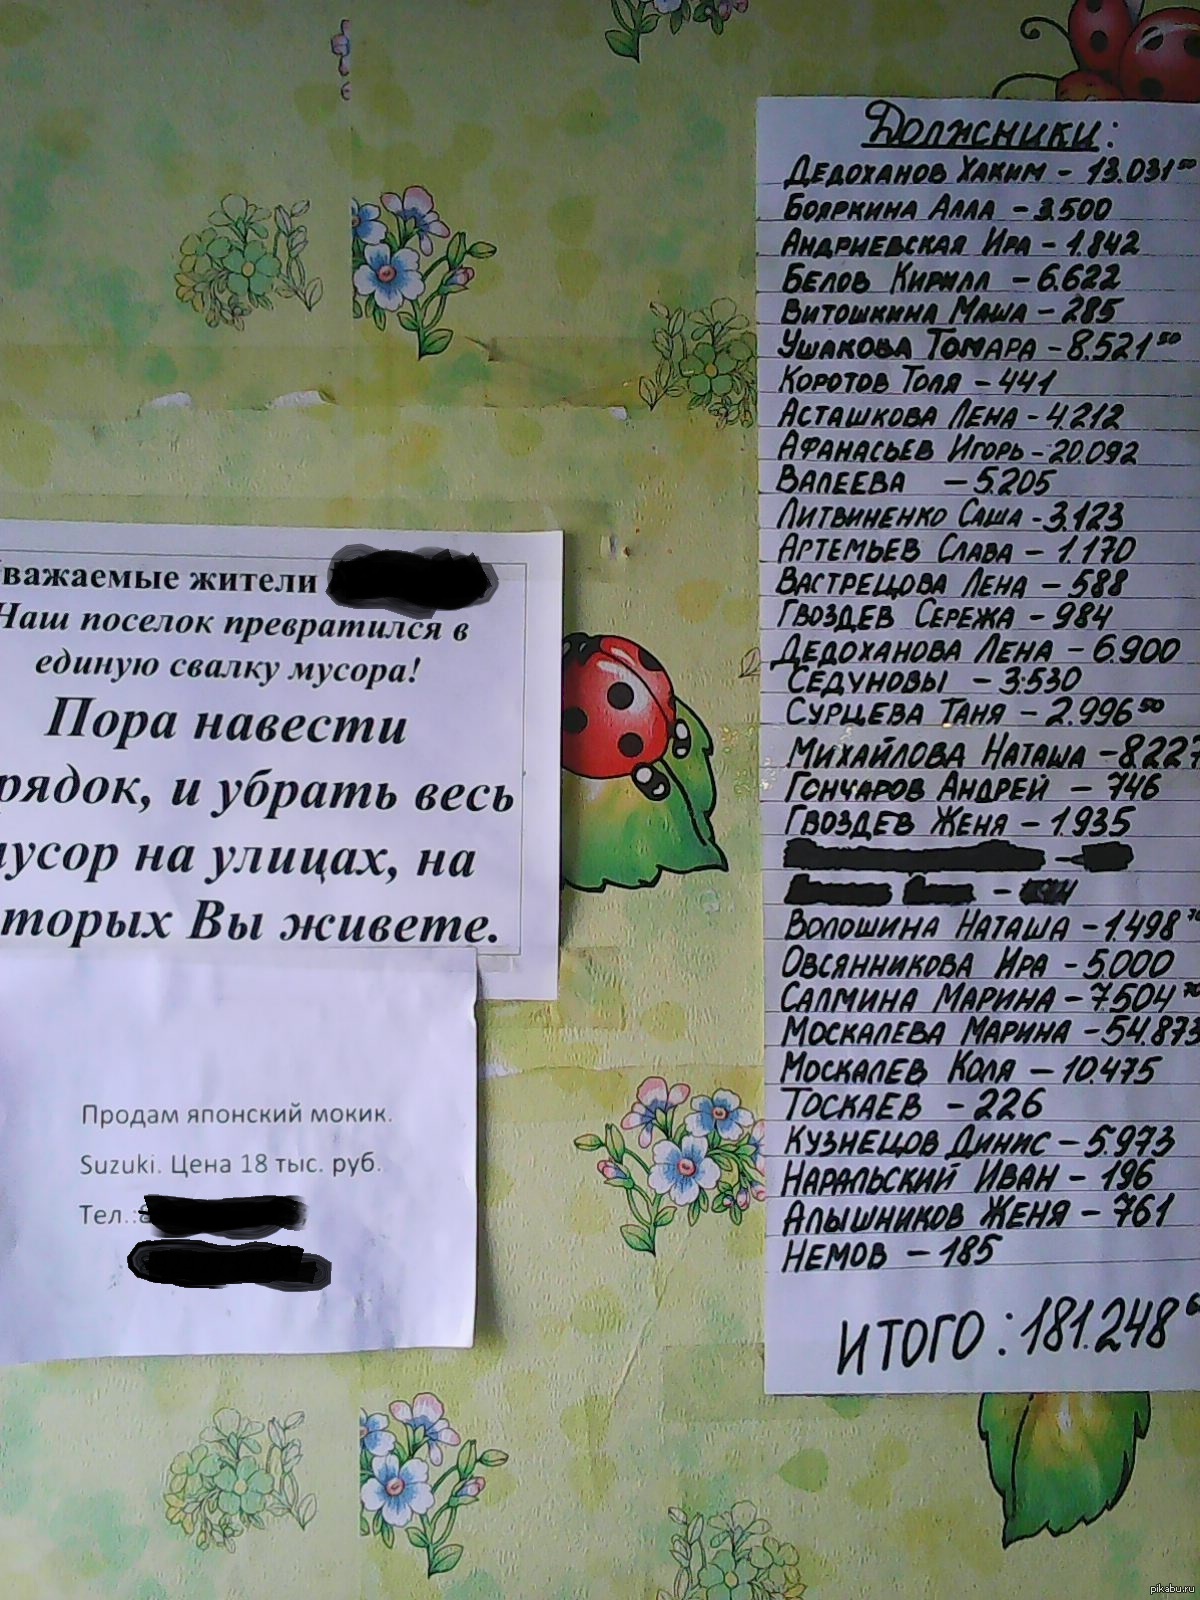 Уважаемые жители
Наш поселок превратился в
единую свалку мусора!
Пора навести
рядок, и убрать весь
усор на улицах, на
торых Вы живете.
Продам японский мокик.
Suzuki. Цена 18 тыс. руб.
Тел.:8
Должсники:
Дедоханов Хаким - 13.031 50
Бояркина Алла - 3.500
Андриевская Ира - 1.842
Белов Кирилл - 6.622
Витошкина Маша - 285
Ушакова Томара - 8.521 50
Коротов Толя - 441
Асташкова Лена - 4.212
Афанасьев Игорь - 20.092
Валеева - 5.205
Литвиненко Саша - 3.123
Артемьев Слава - 1.170
Вастрецова Лена - 588
Гвоздев Сережа - 984
Дедоханова Лена - 6.900
Седуновы - 3.530
Сурцева Таня - 2.996 50
Михайлова Наташа - 8.227
Гончаров Андрей - 746
Гвоздев Женя - 1.935
Волошина Наташа - 1.498 70
Овсянникова Ира - 5.000
Салмина Марина - 7.504 70
Москалева Марина - 54.873
Москалев Коля - 10.475
Тоскаев - 226
Кузнецов Динис - 5.973
Наральский Иван - 196
Алышников Женя - 761
Немов - 185
ИТОГО: 181.248 6
pikabu.ru